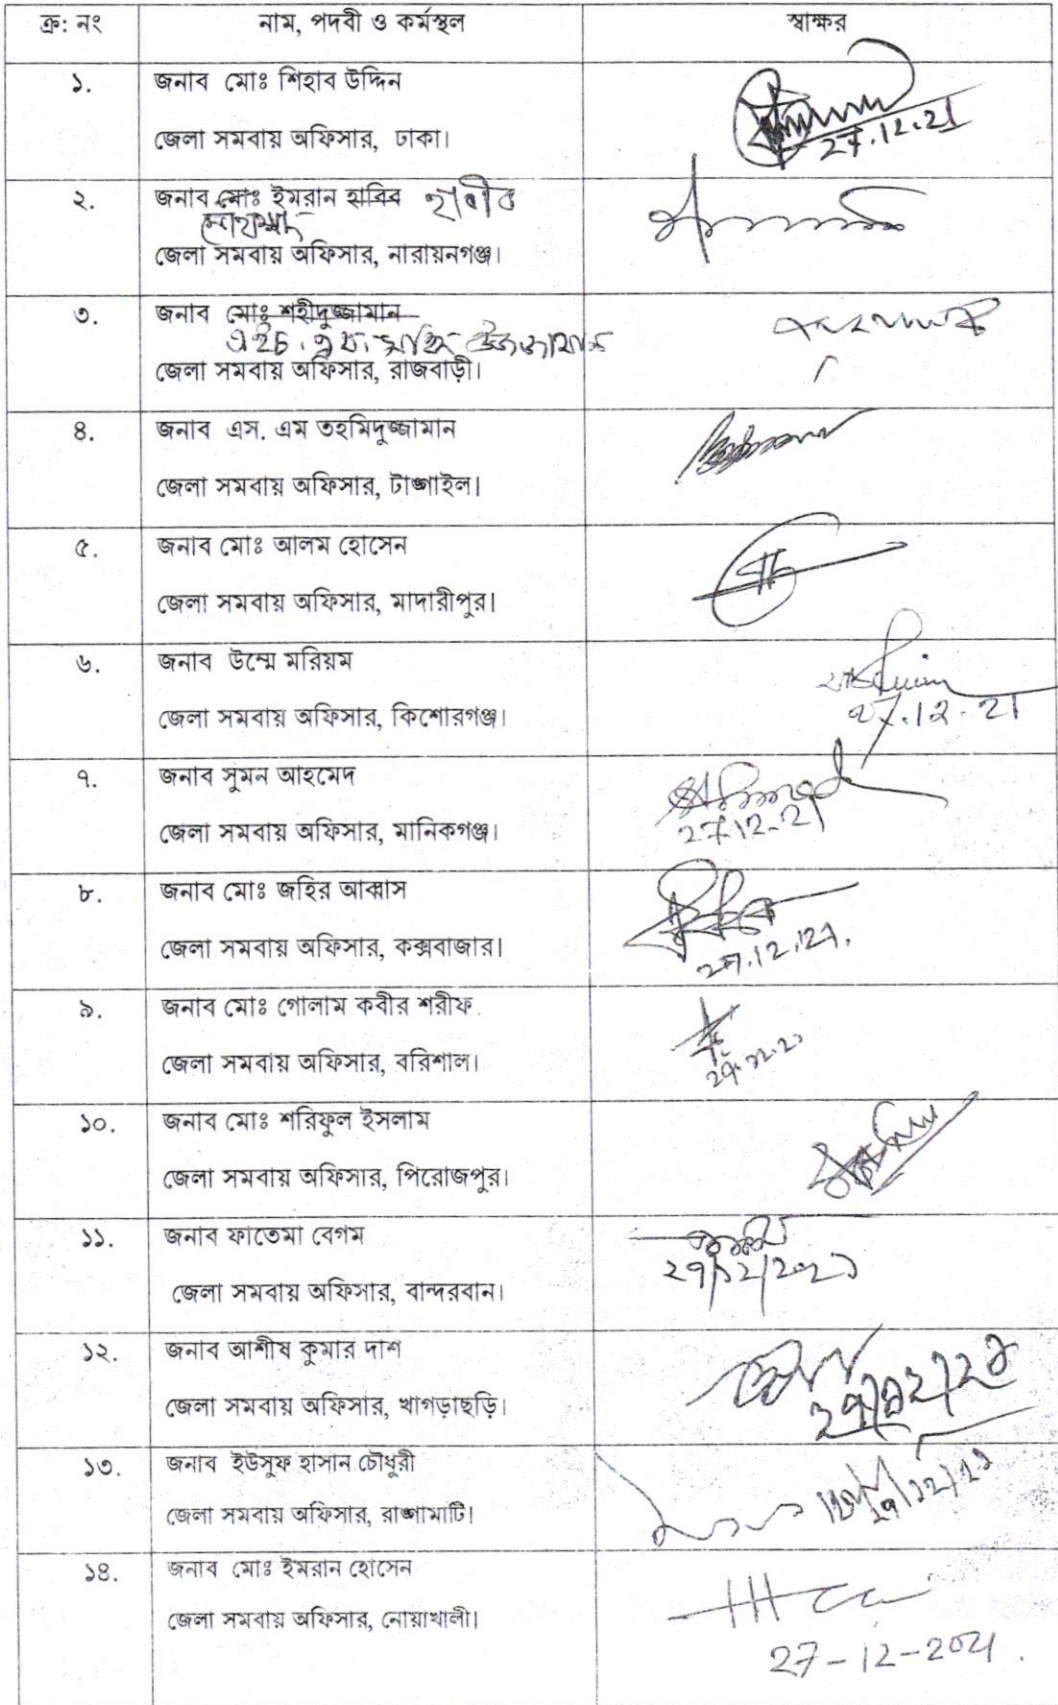 ক্র: নং নাম, পদবী ও কর্মস্থল স্বাক্ষর
১. জনাব মোঃ শিহাব উদ্দিন
জেলা সমবায় অফিসার, ঢাকা।
27.12.21
২. জনাব মোঃ ইমরান হাবিব হাবীব
মোহাম্মদ
জেলা সমবায় অফিসার, নারায়নগঞ্জ।
৩. জনাব মোঃ শহীদুজ্জামান
এইচ. এম.
জেলা সমবায় অফিসার, রাজবাড়ী।
৪. জনাব এস. এম তহমিদুজ্জামান
জেলা সমবায় অফিসার, টাঙ্গাইল।
৫. জনাব মোঃ আলম হোসেন
জেলা সমবায় অফিসার, মাদারীপুর।
৬. জনাব উম্মে মরিয়ম
জেলা সমবায় অফিসার, কিশোরগঞ্জ।
27.12.21
৭. জনাব সুমন আহমেদ
জেলা সমবায় অফিসার, মানিকগঞ্জ।
27.12.21
৮. জনাব মোঃ জহির আব্বাস
জেলা সমবায় অফিসার, কক্সবাজার।
২৭.12.121.
৯. জনাব মোঃ গোলাম কবীর শরীফ
জেলা সমবায় অফিসার, বরিশাল।
২৭.১২.২১
১০. জনাব মোঃ শরিফুল ইসলাম
জেলা সমবায় অফিসার, পিরোজপুর।
১১. জনাব ফাতেমা বেগম
২৭/১২/২০২১
জেলা সমবায় অফিসার, বান্দরবান।
১২. জনাব আশীষ কুমার দাশ
জেলা সমবায় অফিসার, খাগড়াছড়ি।
২৭/১২/২১
১৩. জনাব ইউসুফ হাসান চৌধুরী
জেলা সমবায় অফিসার, রাঙ্গামাটি।
২৭/১২/২১
১৪. জনাব মোঃ ইমরান হোসেন
জেলা সমবায় অফিসার, নোয়াখালী।
27-12-2021.